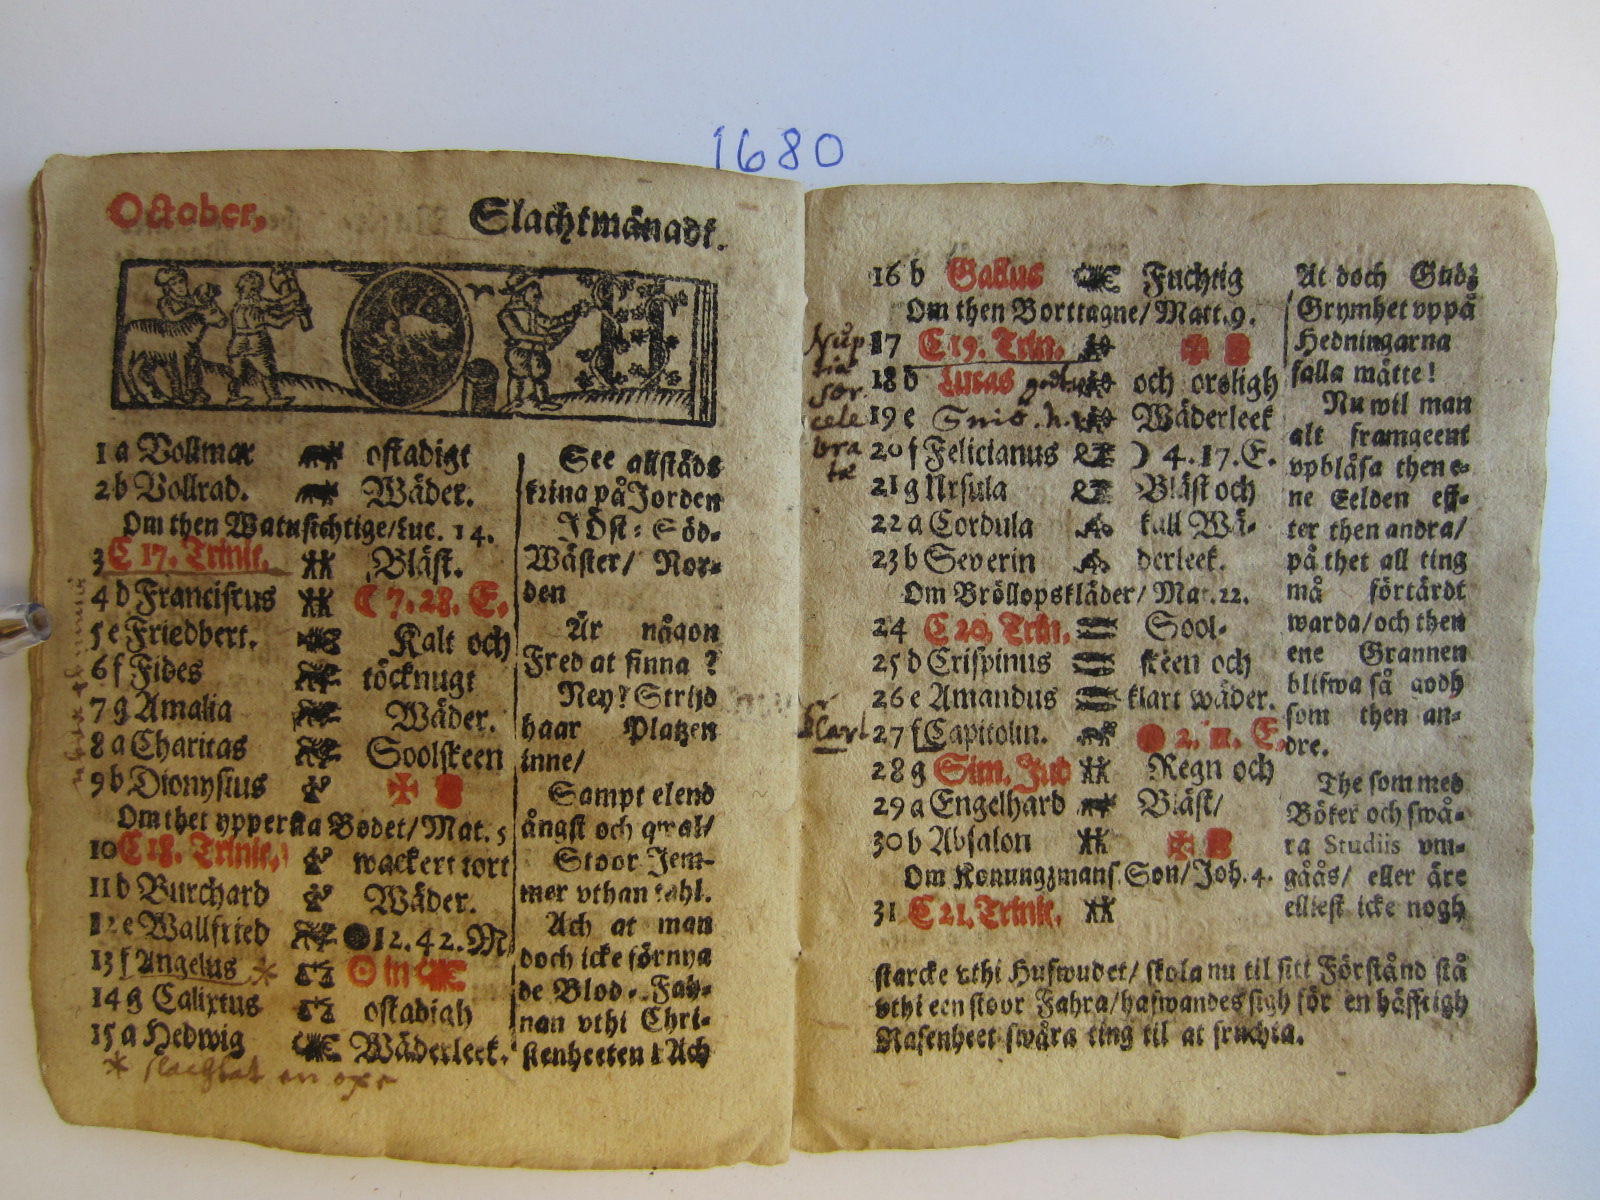 1680
October, Slachtmånadt.
1 a Vollmar ostadigt
2 b Vollrad. Wäder.
Om then Watusichtige/Luc. 14.
3 C 17. Trinit. Blåst.
4 d Franciscus C 7. 28. E.
5 e Friedbert. Kalt och
6 f Fides töcknugt
7 g Amalia Wäder.
8 a Charitas Soolskeen
9 b Dionysius
Om thet yppersta Bodet/Mat.
10 C 18. Trinit. wackert tort
11 d Burchard Wäder.
12 e Wallfried 12. 42. M
13 f Angelus * in
14 g Calixtus ostadigh
15 a Hedwig Wäderleek.
* slachtat en oxe
See allstäds
kring på Jorden
I Öst- Söd-
Wäster/ Nor-
den
Är någon
Fred at finna ?
Ney? Strijd
haar Platzen
inne/
Sampt elend
ångst och qwal/
Stoor Jem-
mer vthan tahl.
Ach at man
doch icke förnya
de Blod-Fah-
nan vthi Chri-
stenheeten! Ach
16 b Gallus Fuchtig
Om then Borttagne/Matt. 9.
17 C 19. Trin.
18 b Lucas och oroligh
19 e Wäderleek
20 f Felicianus ) 4. 17. E.
21 g Ursula Blåst och
22 a Cordula kall Wä-
23 b Severin derleek.
Om Bröllopskläder/Mat. 22.
24 C 20. Trin. Sool-
25 d Crispinus skeen och
26 e Amandus klart wäder.
27 f Capitolin. 2. 11. E.
28 g Sim. Jud Regn och
29 a Engelhard Blåst/
30 b Absalon
Om Konungzmans Son/Joh. 4.
31 C 21. Trinit.
Nup
tiæ
cele
bra
tæ
At doch Gudz
Grymhet vppå
Hedningarna
falla måtte!
Nu wil man
alt framgeent
vpblåsa then e-
ne Eelden eff-
ter then andra/
på thet all ting
må förtärdt
warda/och then
ene Grannen
blifwa så godh
som then an-
dre.
The som med
Böker och swå-
ra Studiis vm-
gåås/ eller äre
elliest icke nogh
starcke vthi Hufwudet/ skola nu til sitt Förstånd stå
vthi een stoor Fahra/hafwandes sigh för en häfftigh
Rasenheet swåra ting til at fruchta.